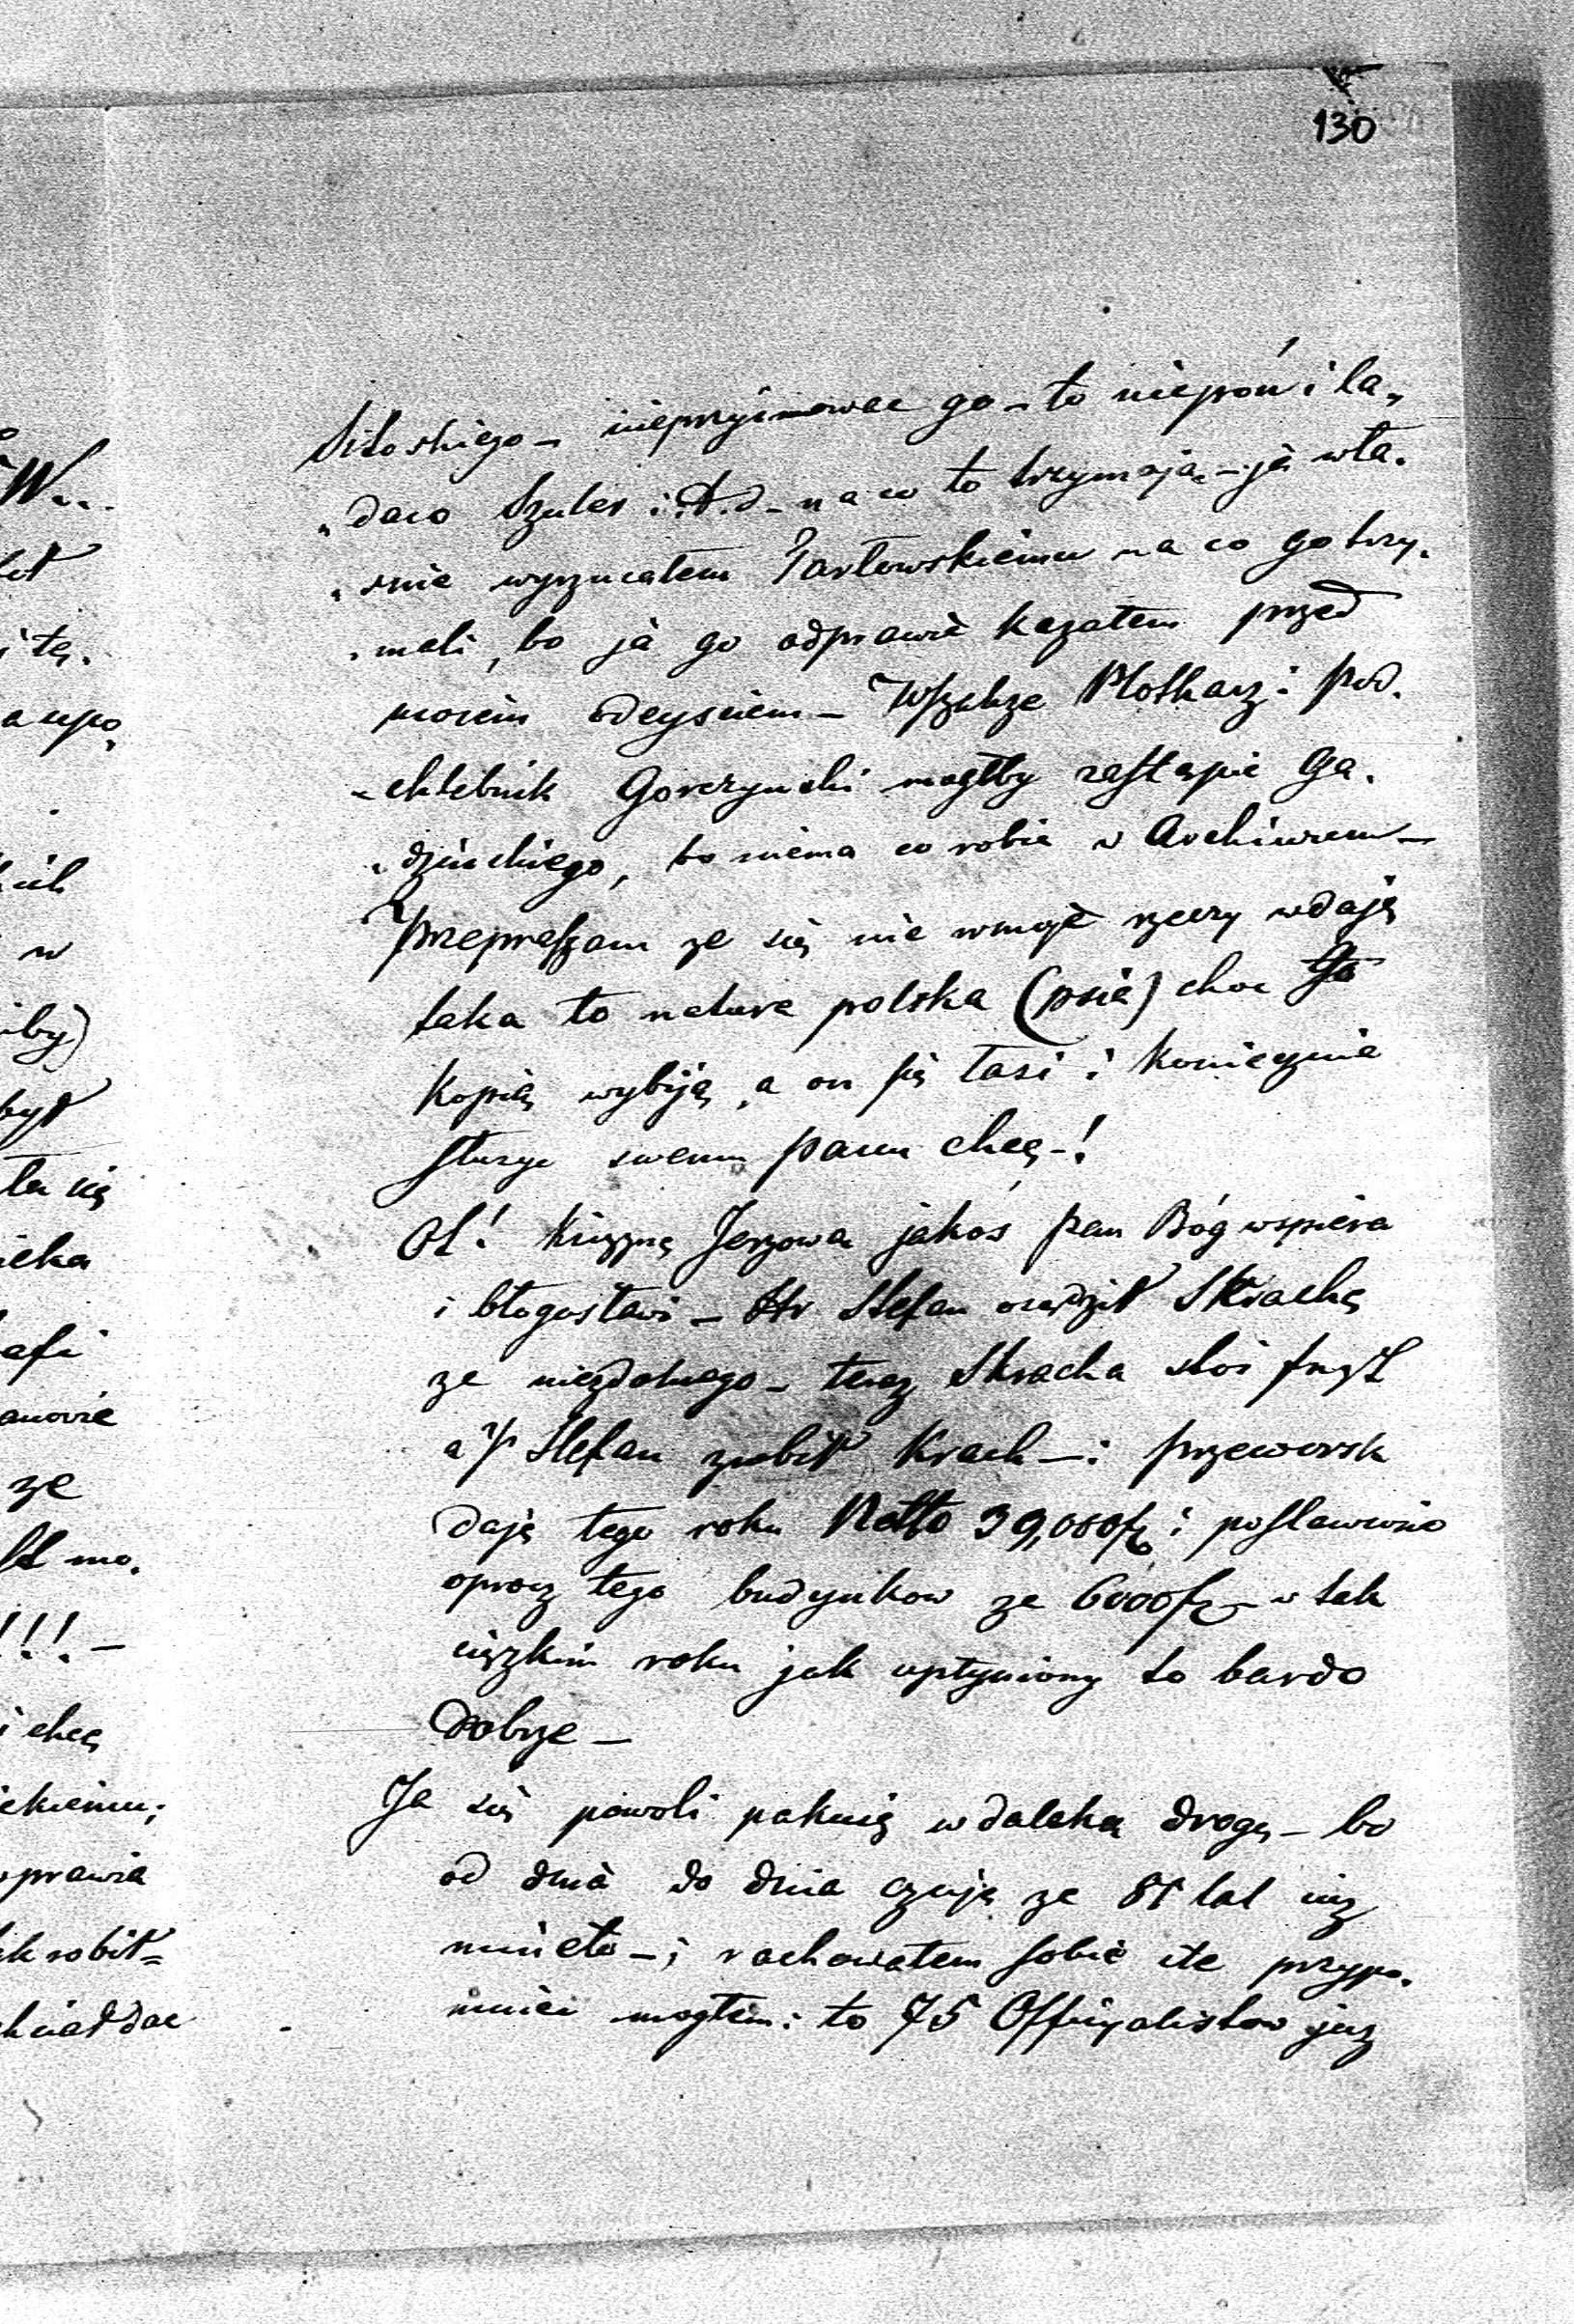 130
nieprzyimowac go – to niepoń i la„
„daco Szuler i.t.d – na co to trzymają – ja wła.
„snie wyrzucałem Pawłowskiemu na co go trzy.
„mali, bo ja go odprawić kazałem przed
moiem odeysciem – Wszakze Plotkarz i pod.
„chlebnik Gorczynski mogłby zastąpic Ga.
„dzinskiego, bo niema co robic w Archiwum –
Przepraszam ze się nie wmoje rzeczy wdaję
taka to natura polska (psia) choc go
kopią wybiją, a on się łasi i koniecznie
służyc swemu panu chcę –!
Ot! Księznę Jerzową jakoś Pan Bóg wspiera
i błogosławi – Hr Stefan osądził Skrachę
ze niezdolnego – teraz Skracha stoi
a P Stefan zrobił Krach – i Przeworsk
daję tego roku Netto 39,000 fr i postawiono
oprocz tego budynkow za 6000 fr – w tak
ciężkim roku jak upłyniony to bardo
dobrze –
Ja się powoli pakuię w daleką drogę – bo
od dnia do dnia czuję ze lat iuz
mineło – i rachowałem sobie ile przypo.
mniec mogłem: to 75 Officyalistow juz
W..
itę.
w
iby)
ta się
ze
!!! –
i chcę